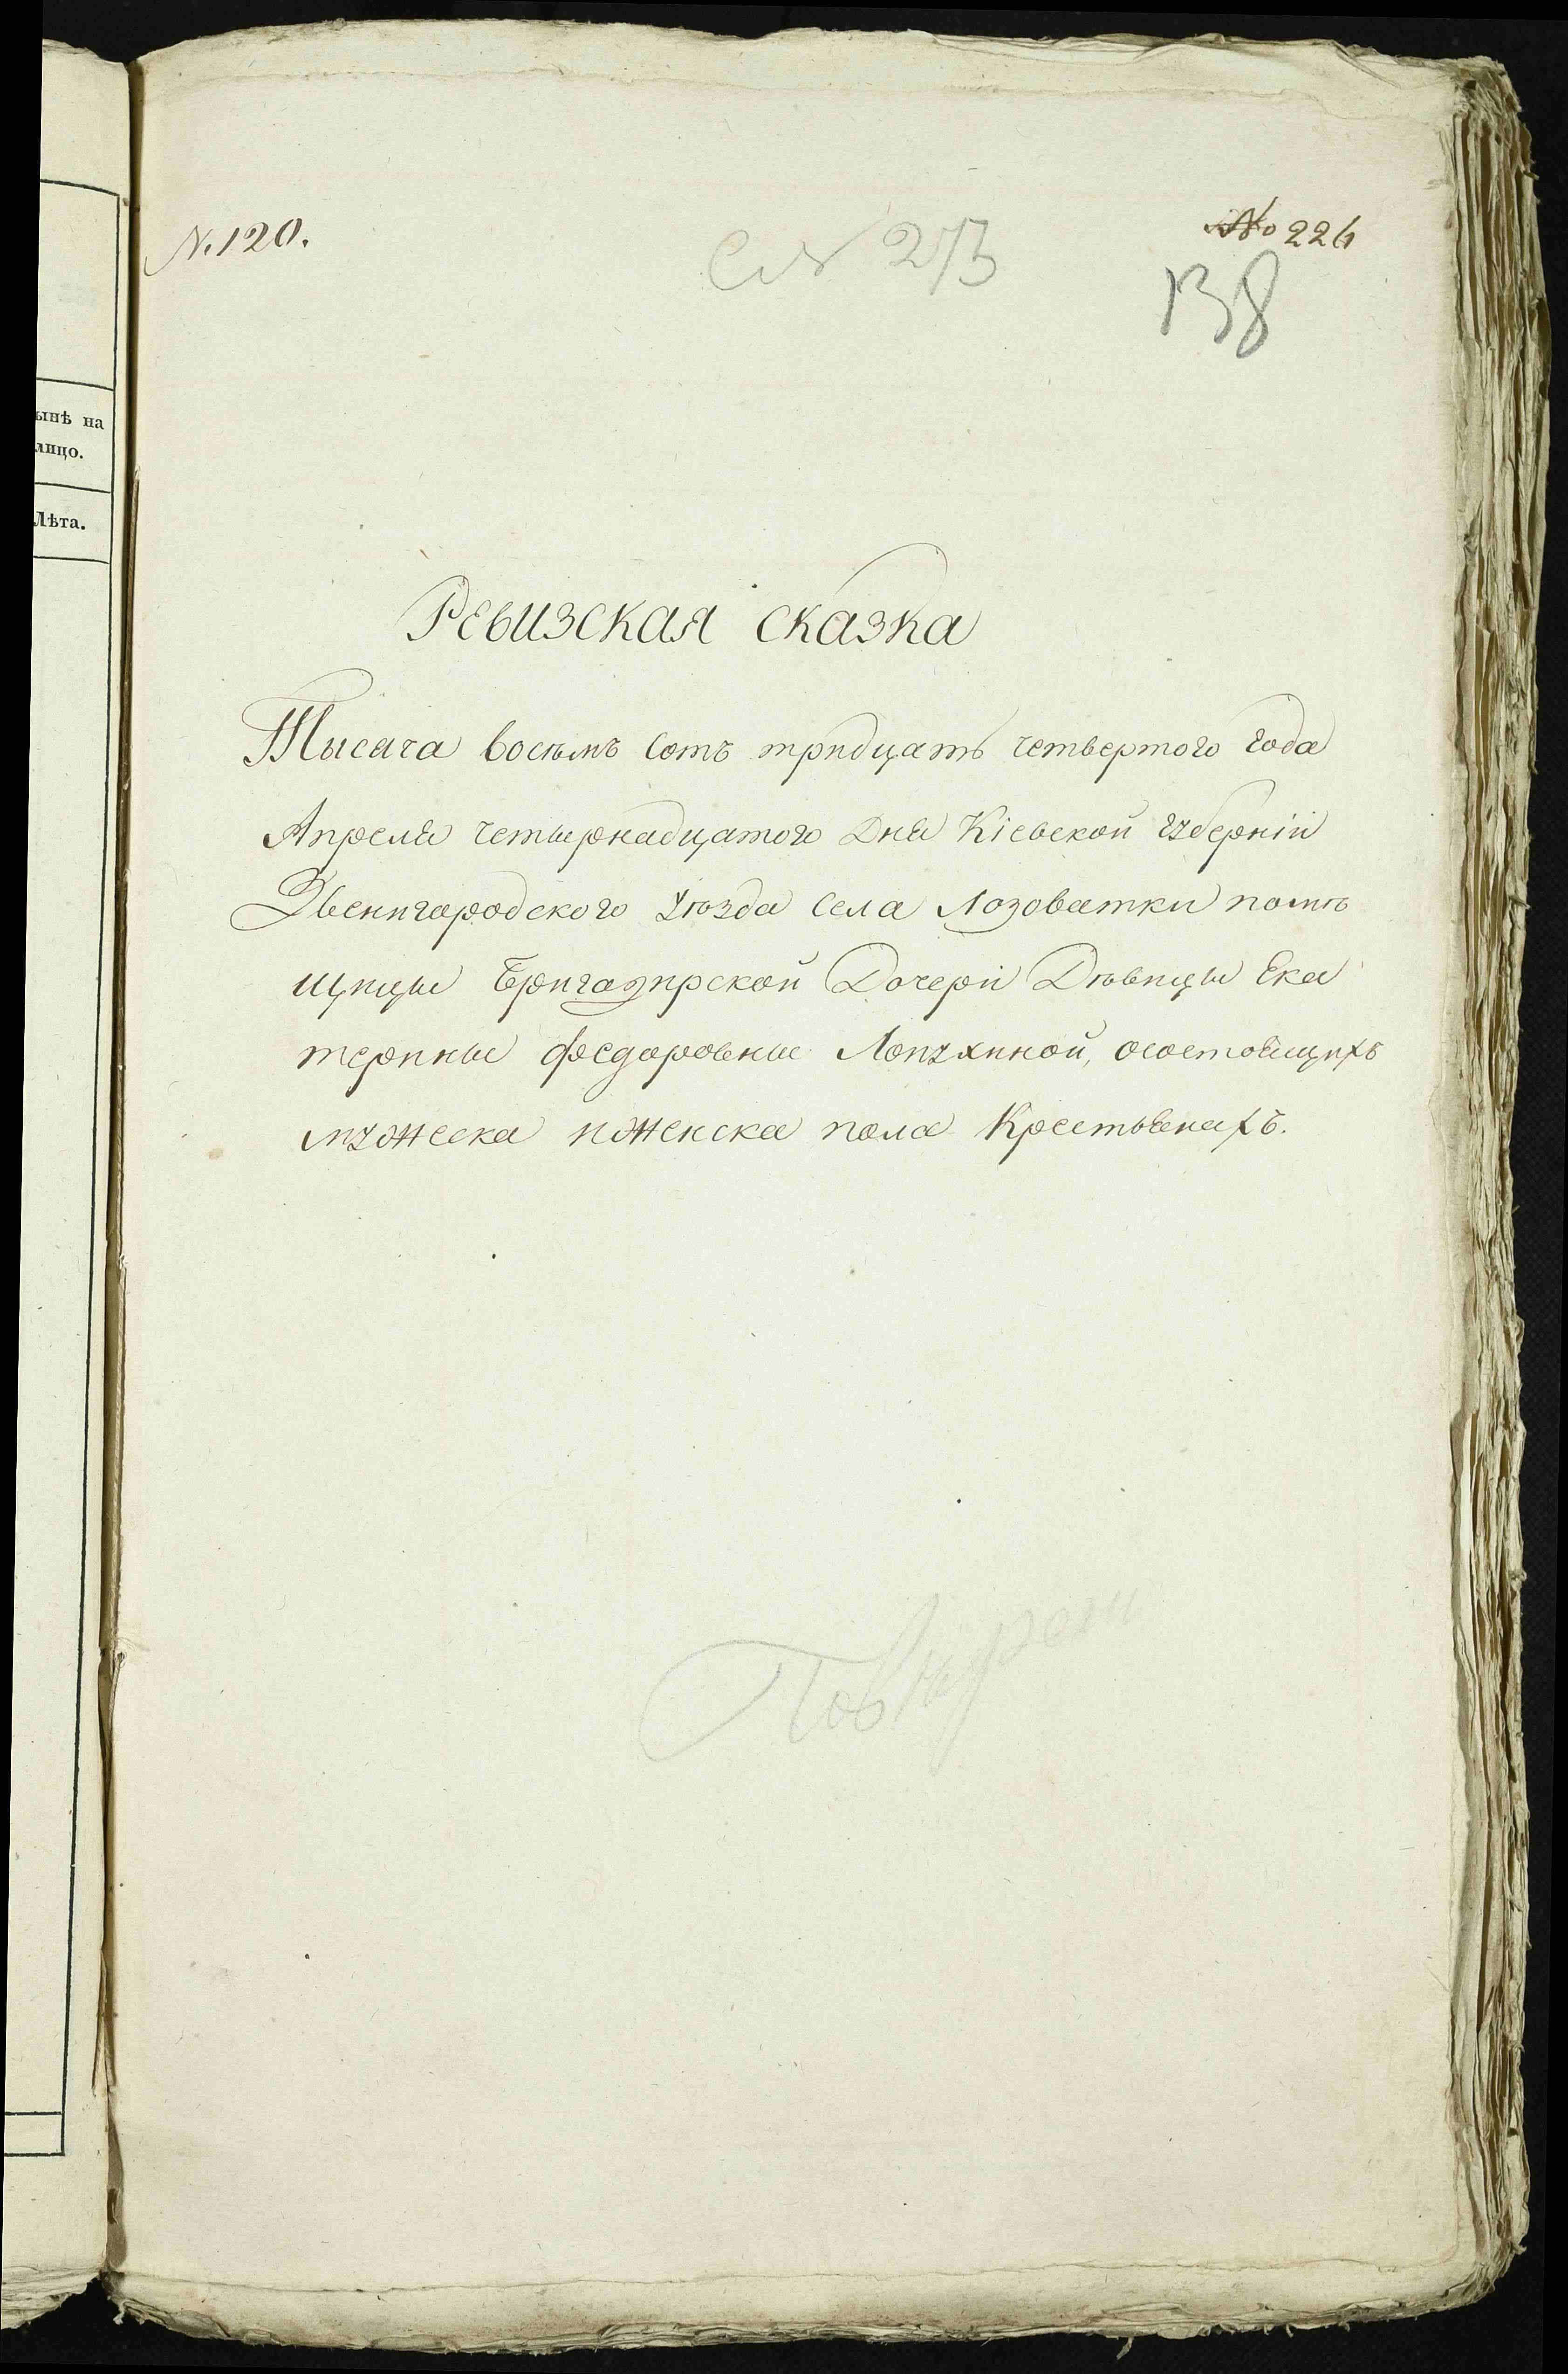 N. 120.
№ 224
138
№ 273
ынѣ на
лицо.
Лѣта.
Ревизская сказка
Тысяча восѣмъ сотъ тридцать четвертого года
Апреля четырнадцатого Дня Кіевской губерніи
Звенигородского уѣзда села Лозоватки помѣ
щицы Бригадирской Дочери Дѣвицы Ека
терины Федоровны Лопухиной, осостоящихъ
мужеска иженска пола Крестьянахъ.